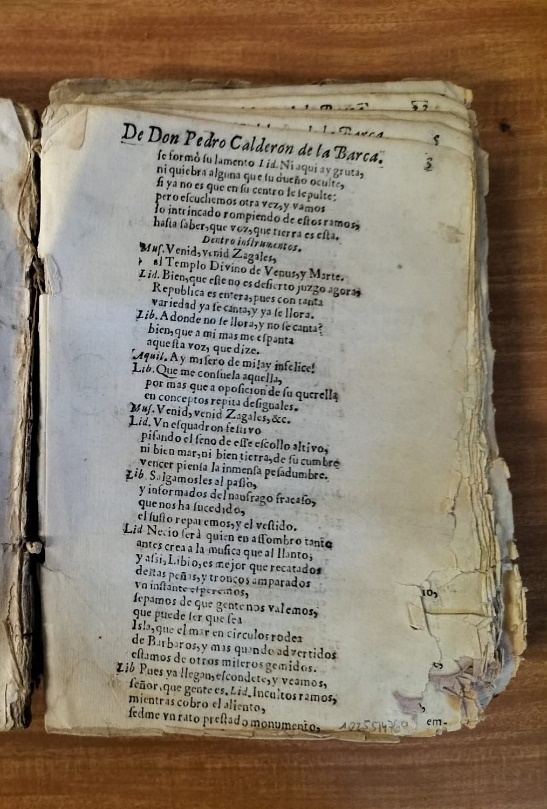 De Don Pedro Calderon de la Barca. 3
se formò su lamento Lid. Ni aqui ay gruta,
ni quiebra alguna que su dueño oculte,
si ya no es que en su centro le sepulte;
pero escuchemos otra vez, y vamos
lo intrincado rompiendo de estos ramos,
hasta saber, que voz, que tierra es esta.
Dentro instrumentos.
Mus. Venid, venid Zagales,
al Templo Divino de Venus, y Marte.
Lid. Bien, que este no es desierto juzgo agora,
Republica es entera, pues con tanta
variedad ya se canta, y ya se llora.
Lib. Adonde no se llora, y no se canta?
bien, que a mi mas me espanta
aquesta voz, que dize.
Aquil. Ay misero de mi! ay infelice!
Lib. Que me consuela aquella,
por mas que a oposicion de su querella
en conceptos repita desiguales.
Mus. Venid, venid Zagales, &c.
Lid. Vn esquadron festivo
pisando el seno de esse escollo altivo,
ni bien mar, ni bien tierra, de su cumbre
vencer piensa la inmensa pesadumbre.
Lib. Salgamosles al passo,
y informados del naufrago fracaso,
que nos ha sucedido,
el susto reparemos, y el vestido.
Lid Necio serà quien en assombro tanto
antes crea a la musica que al llanto;
y assi, Libio, es mejor que recatados
destas peñas, y troncos amparados
vn instante esperemos,
sepamos de que gente nos valemos,
que puede ser que sea
Isla, que el mar en circulos rodea
de Barbaros, y mas quando advertidos
estamos de otros miseros gemidos.
Lib Pues ya llegan, escondete, y veamos,
señor, que gente es. Lid. Incultos ramos,
mientras cobro el aliento,
sedme vn rato prestado monumento,
5
10,
em-